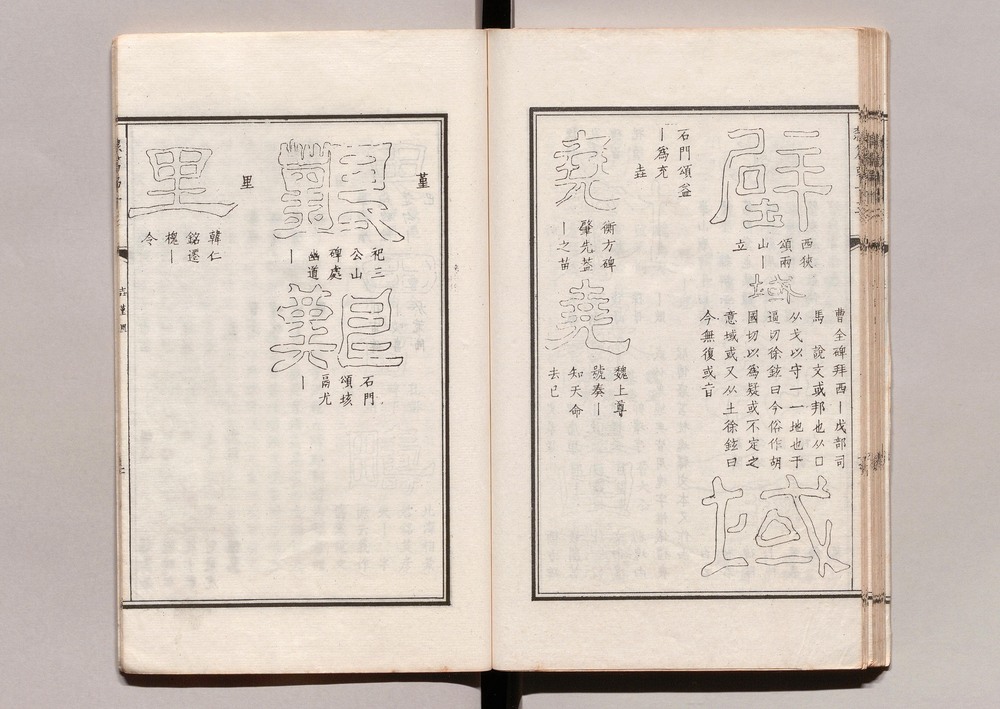 壁
西狹
頌兩
山｜
立
域
曹全碑拜西｜戊部司
馬　說文或邦也从口
从戈以守一一地也于
逼切徐鉉曰今俗作胡
國切以爲疑或不定之
意域或又从土徐鉉曰
今無復或音
域
石門頌益
｜爲充
垚
堯
衡方碑
肇先蓋
｜之苗
堯
魏上尊
號奏｜
知天命
去已
堇
艱
祀三
公山
碑處
幽道
｜
艱
石門
頌垓
鬲尤
｜
里
里
韓仁
銘還
槐｜
令